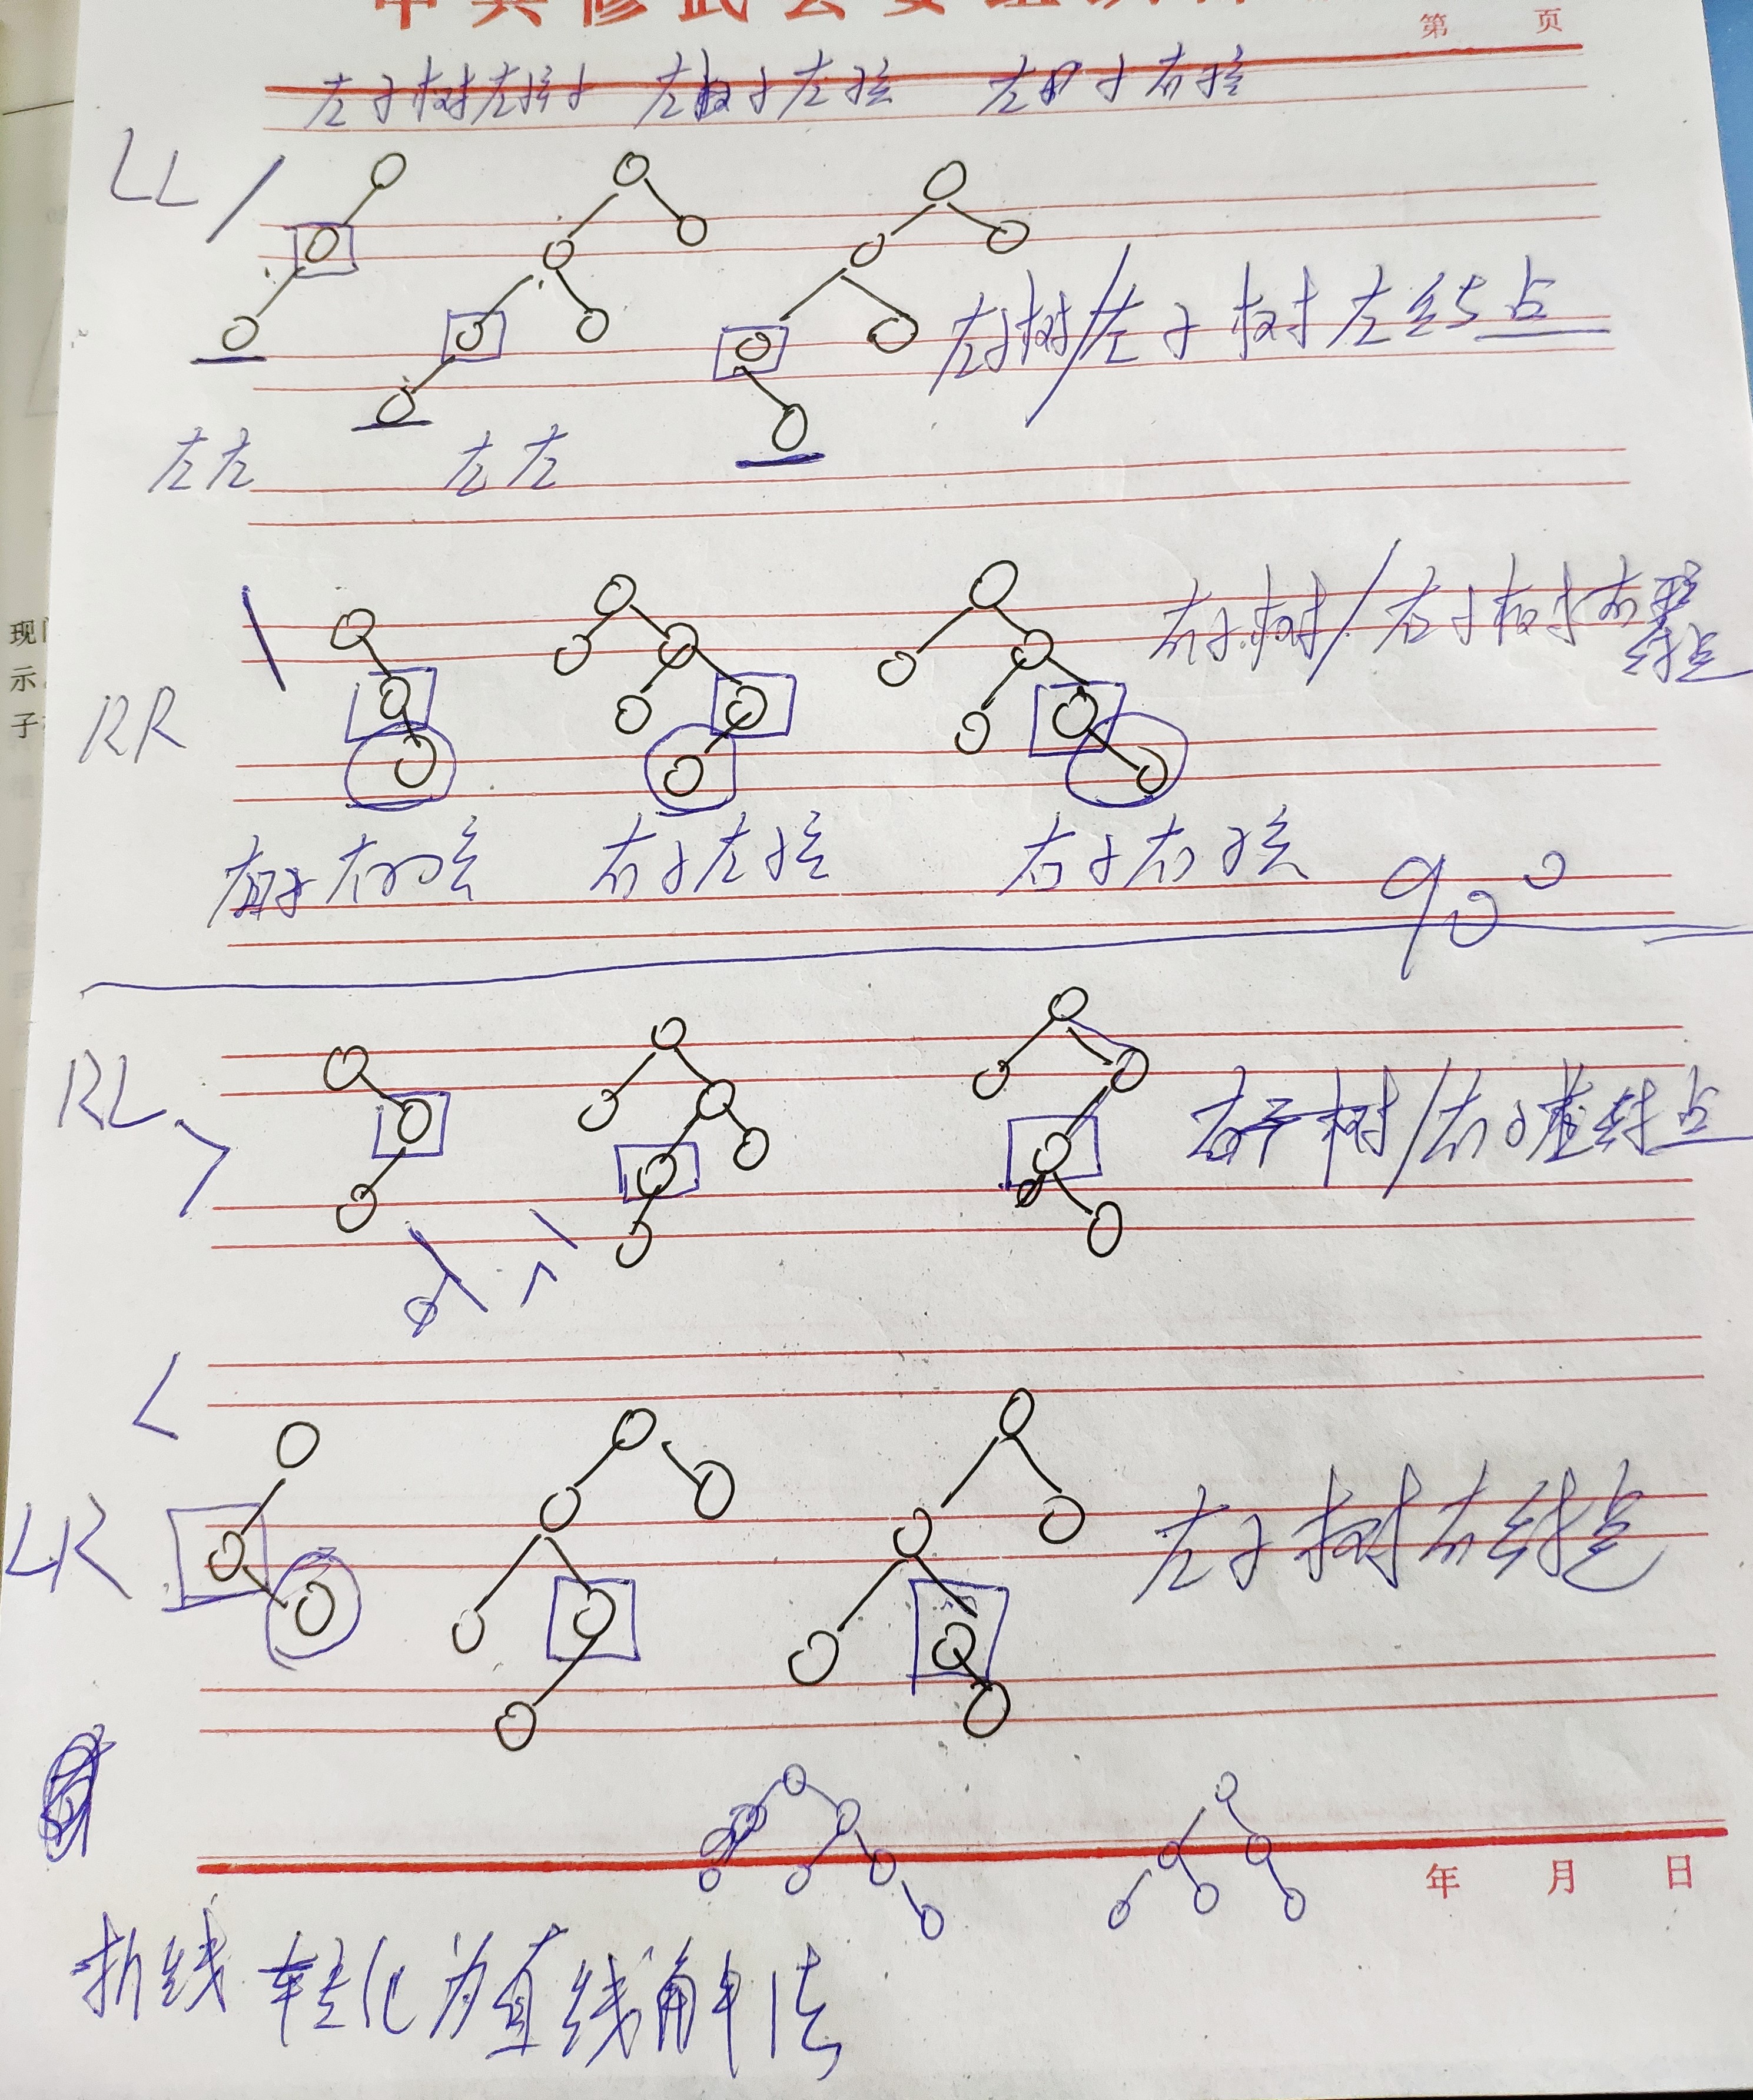 第 页
左子树左孩子 左树子左孩 左子右孩
LL
左子树/左子树左结点
左左 左左
右子树/右子树右
结点
RR
右子左孩 右子右孩
RL
右子树/右子 结点
LR
左子树右结点
年 月 日
折线转化为直线解法
现
示
子